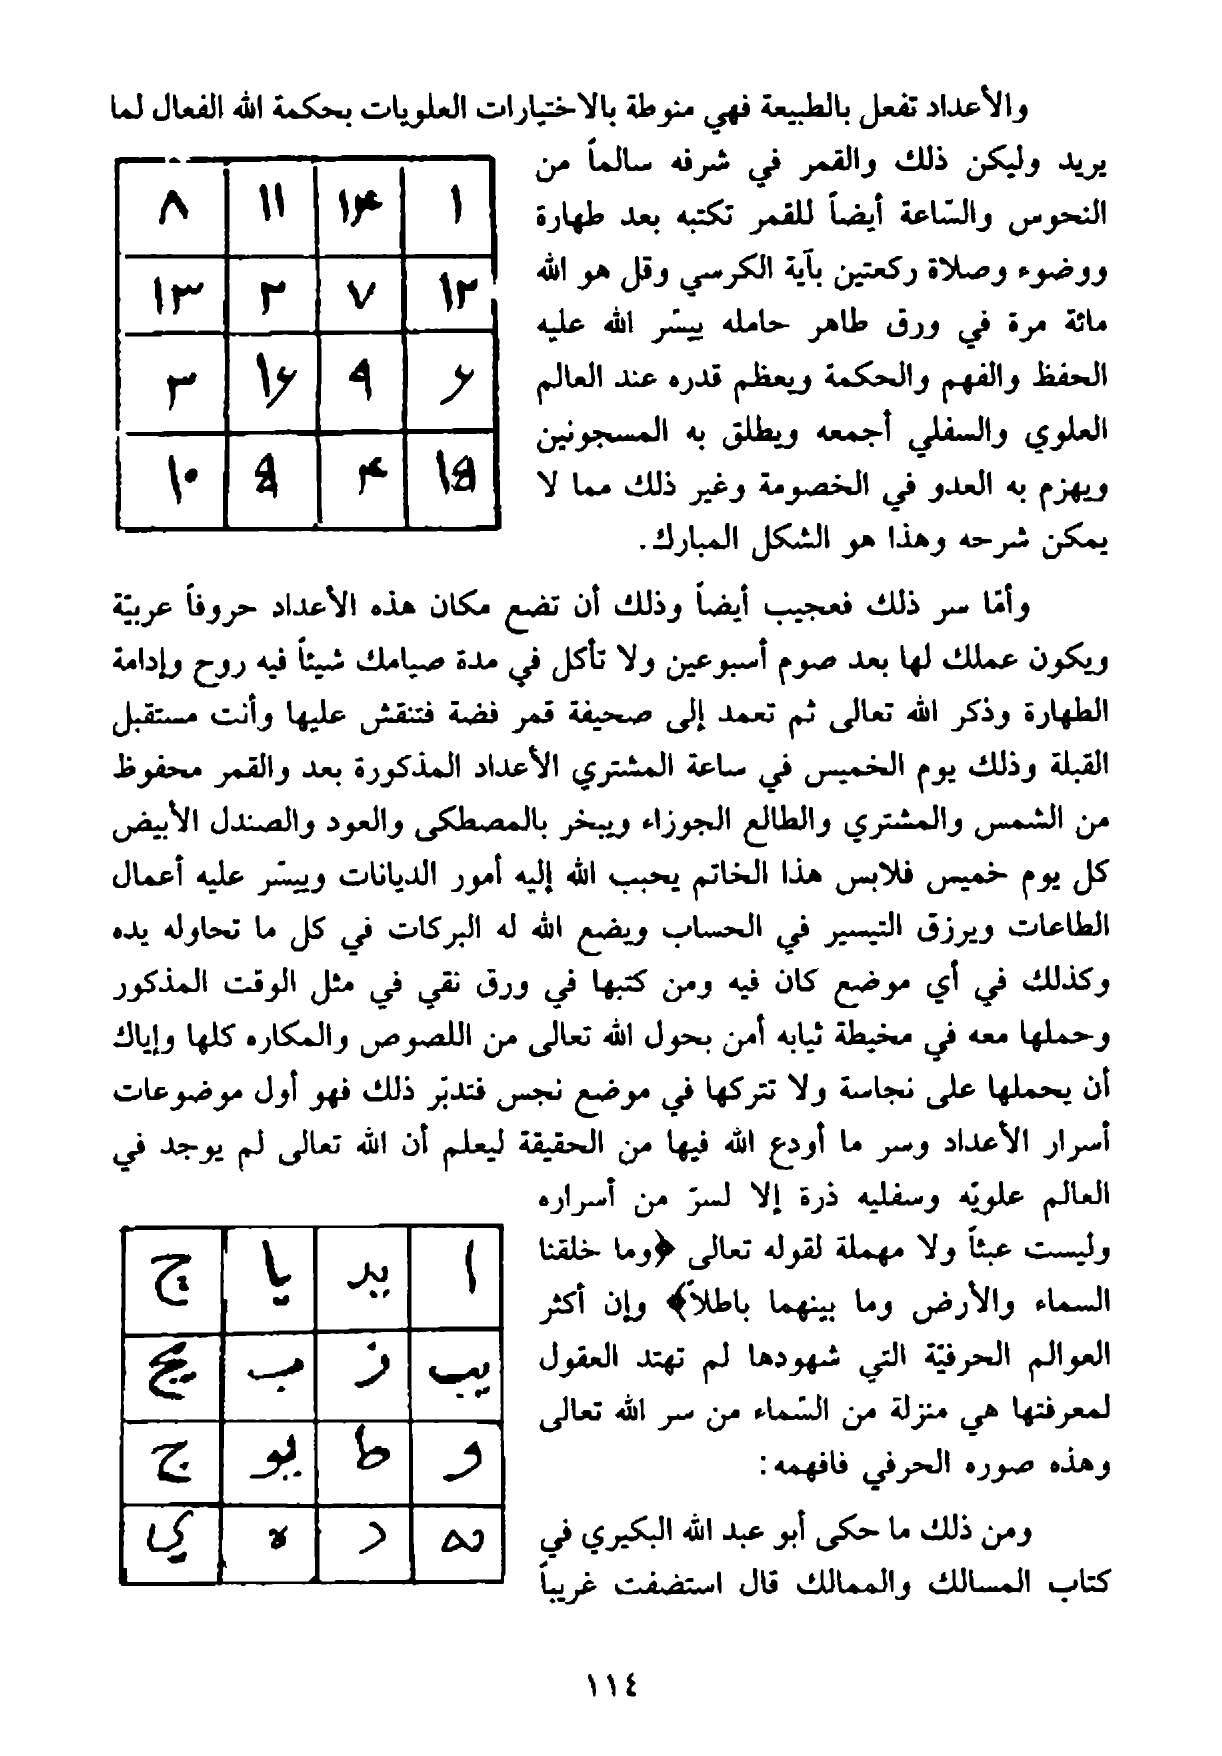 والأعداد تفعل بالطبيعة فهي منوطة بالاختيارات العلويات بحكمة الله الفعال لما
يريد وليكن ذلك والقمر في شرفه سالماً من
النحوس والسّاعة أيضاً للقمر تكتبه بعد طهارة
ووضوء وصلاة ركعتين بآية الكرسي وقل هو الله
مائة مرة في ورق طاهر حامله ييسّر الله عليه
الحفظ والفهم والحكمة ويعظم قدره عند العالم
العلوي والسفلي أجمعه ويطلق به المسجونين
ويهزم به العدو في الخصومة وغير ذلك مما لا
يمكن شرحه وهذا هو الشكل المبارك.
١ ١۴ ١١ ٨
١٢ ٧ ٢ ١٣
۶ ٩ ١۶ ٣
١۵ ۴ ۵ ١٠
وأمّا سر ذلك فعجيب أيضاً وذلك أن تضع مكان هذه الأعداد حروفاً عربيّة
ويكون عملك لها بعد صوم أسبوعين ولا تأكل في مدة صيامك شيئاً فيه روح وإدامة
الطهارة وذكر الله تعالى ثم تعمد إلى صحيفة قمر فضة فتنقش عليها وأنت مستقبل
القبلة وذلك يوم الخميس في ساعة المشتري الأعداد المذكورة بعد والقمر محفوظ
من الشمس والمشتري والطالع الجوزاء ويبخر بالمصطكى والعود والصندل الأبيض
كل يوم خميس فلابس هذا الخاتم يحبب الله إليه أمور الديانات وييسّر عليه أعمال
الطاعات ويرزق التيسير في الحساب ويضع الله له البركات في كل ما تحاوله يده
وكذلك في أي موضع كان فيه ومن كتبها في ورق نقي في مثل الوقت المذكور
وحملها معه في مخيطة ثيابه أمن بحول الله تعالى من اللصوص والمكاره كلها وإياك
أن يحملها على نجاسة ولا تتركها في موضع نجس فتدبّر ذلك فهو أول موضوعات
أسرار الأعداد وسر ما أودع الله فيها من الحقيقة ليعلم أن الله تعالى لم يوجد في
العالم علويّه وسفليه ذرة إلا لسرّ من أسراره
وليست عبثاً ولا مهملة لقوله تعالى ﴿وما خلقنا
السماء والأرض وما بينهما باطلاً﴾ وإن أكثر
العوالم الحرفيّة التي شهودها لم تهتد العقول
لمعرفتها هي منزلة من السّماء من سر الله تعالى
وهذه صوره الحرفي فافهمه:
ا يد يا ح
يب ز ب يج
و ط يو ج
يه د ه ي
ومن ذلك ما حكى أبو عبد الله البكيري في
كتاب المسالك والممالك قال استضفت غريباً
١١٤